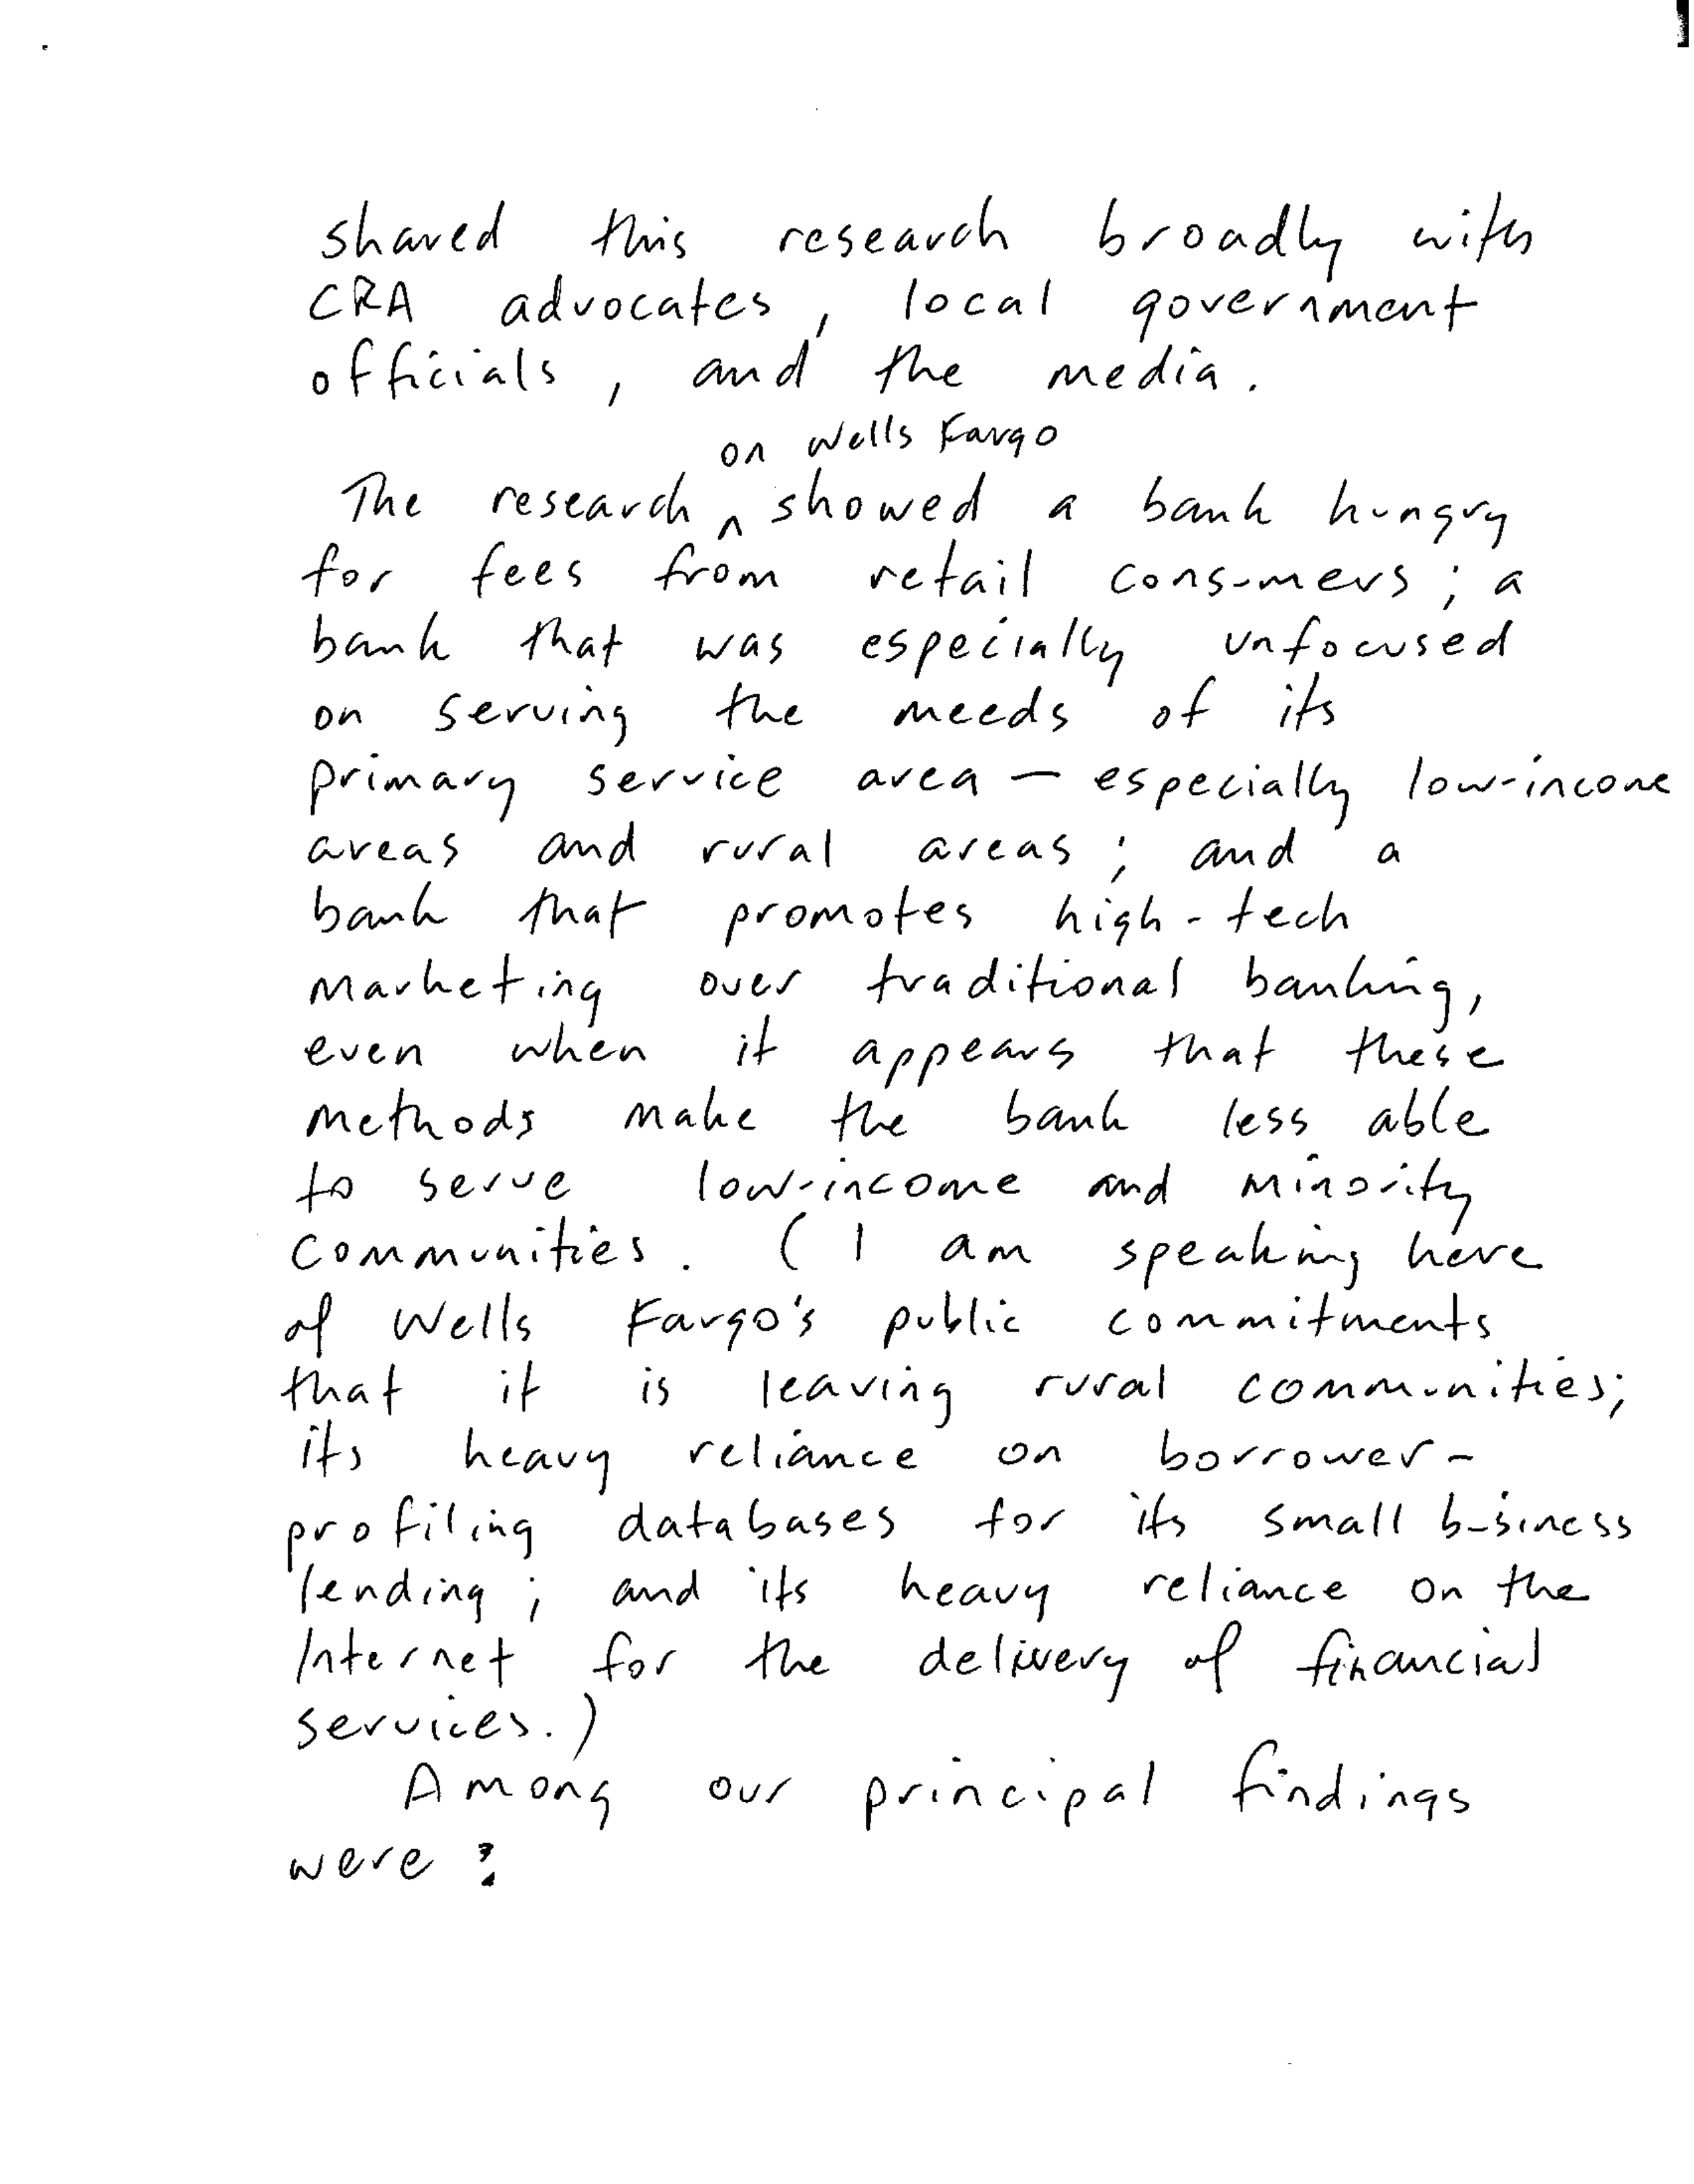 shared this research broadly with
CRA advocates, local government
officials, and the media.
on Wells Fargo
The research ^ showed a bank hungry
for fees from retail consumers; a
bank that was especially unfocused
on serving the needs of its
primary service area — especially low-income
areas and rural areas; and a
bank that promotes high-tech
marketing over traditional banking,
even when it appears that these
methods make the bank less able
to serve low-income and minority
communities. (I am speaking here
of Wells Fargo's public commitments
that it is leaving rural communities;
its heavy reliance on borrower-
profiling databases for its small business
lending; and its heavy reliance on the
Internet for the delivery of financial
services.)
Among our principal findings
were: